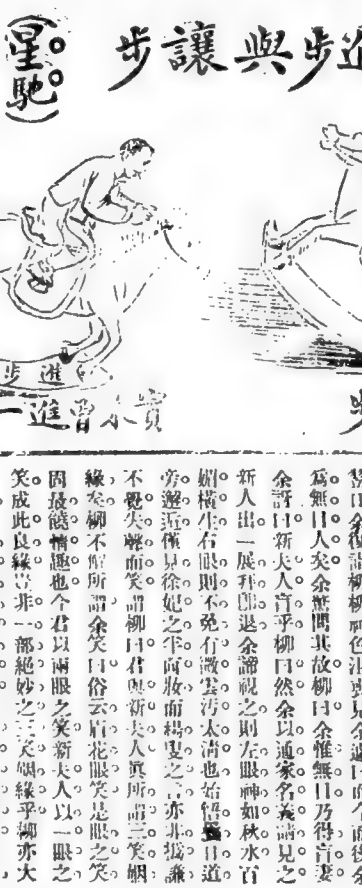 進步與讓步
(星馳)
進步
實未曾進一
步
為無目人矣余驚問其故柳曰余惟無目乃得盲妻
余訝曰新夫人盲乎柳曰然余以通家名義請見之
新人出一展拜卽退余諦視之則左眼神如秋水百
媚橫生右眼則不免有微雲污太清也始悟曩日道
旁邂逅僅見徐妃之半面妝而楊叟之言亦非撝謙
不覺失聲而笑謂柳曰君與新夫人眞所謂三笑姻
緣矣柳不解所謂余笑曰俗云眉花眼笑是眼之笑
固最饒情趣也今君以兩眼之笑新夫人以一眼之
笑成此良緣豈非一部絕妙之三笑姻緣乎柳亦大